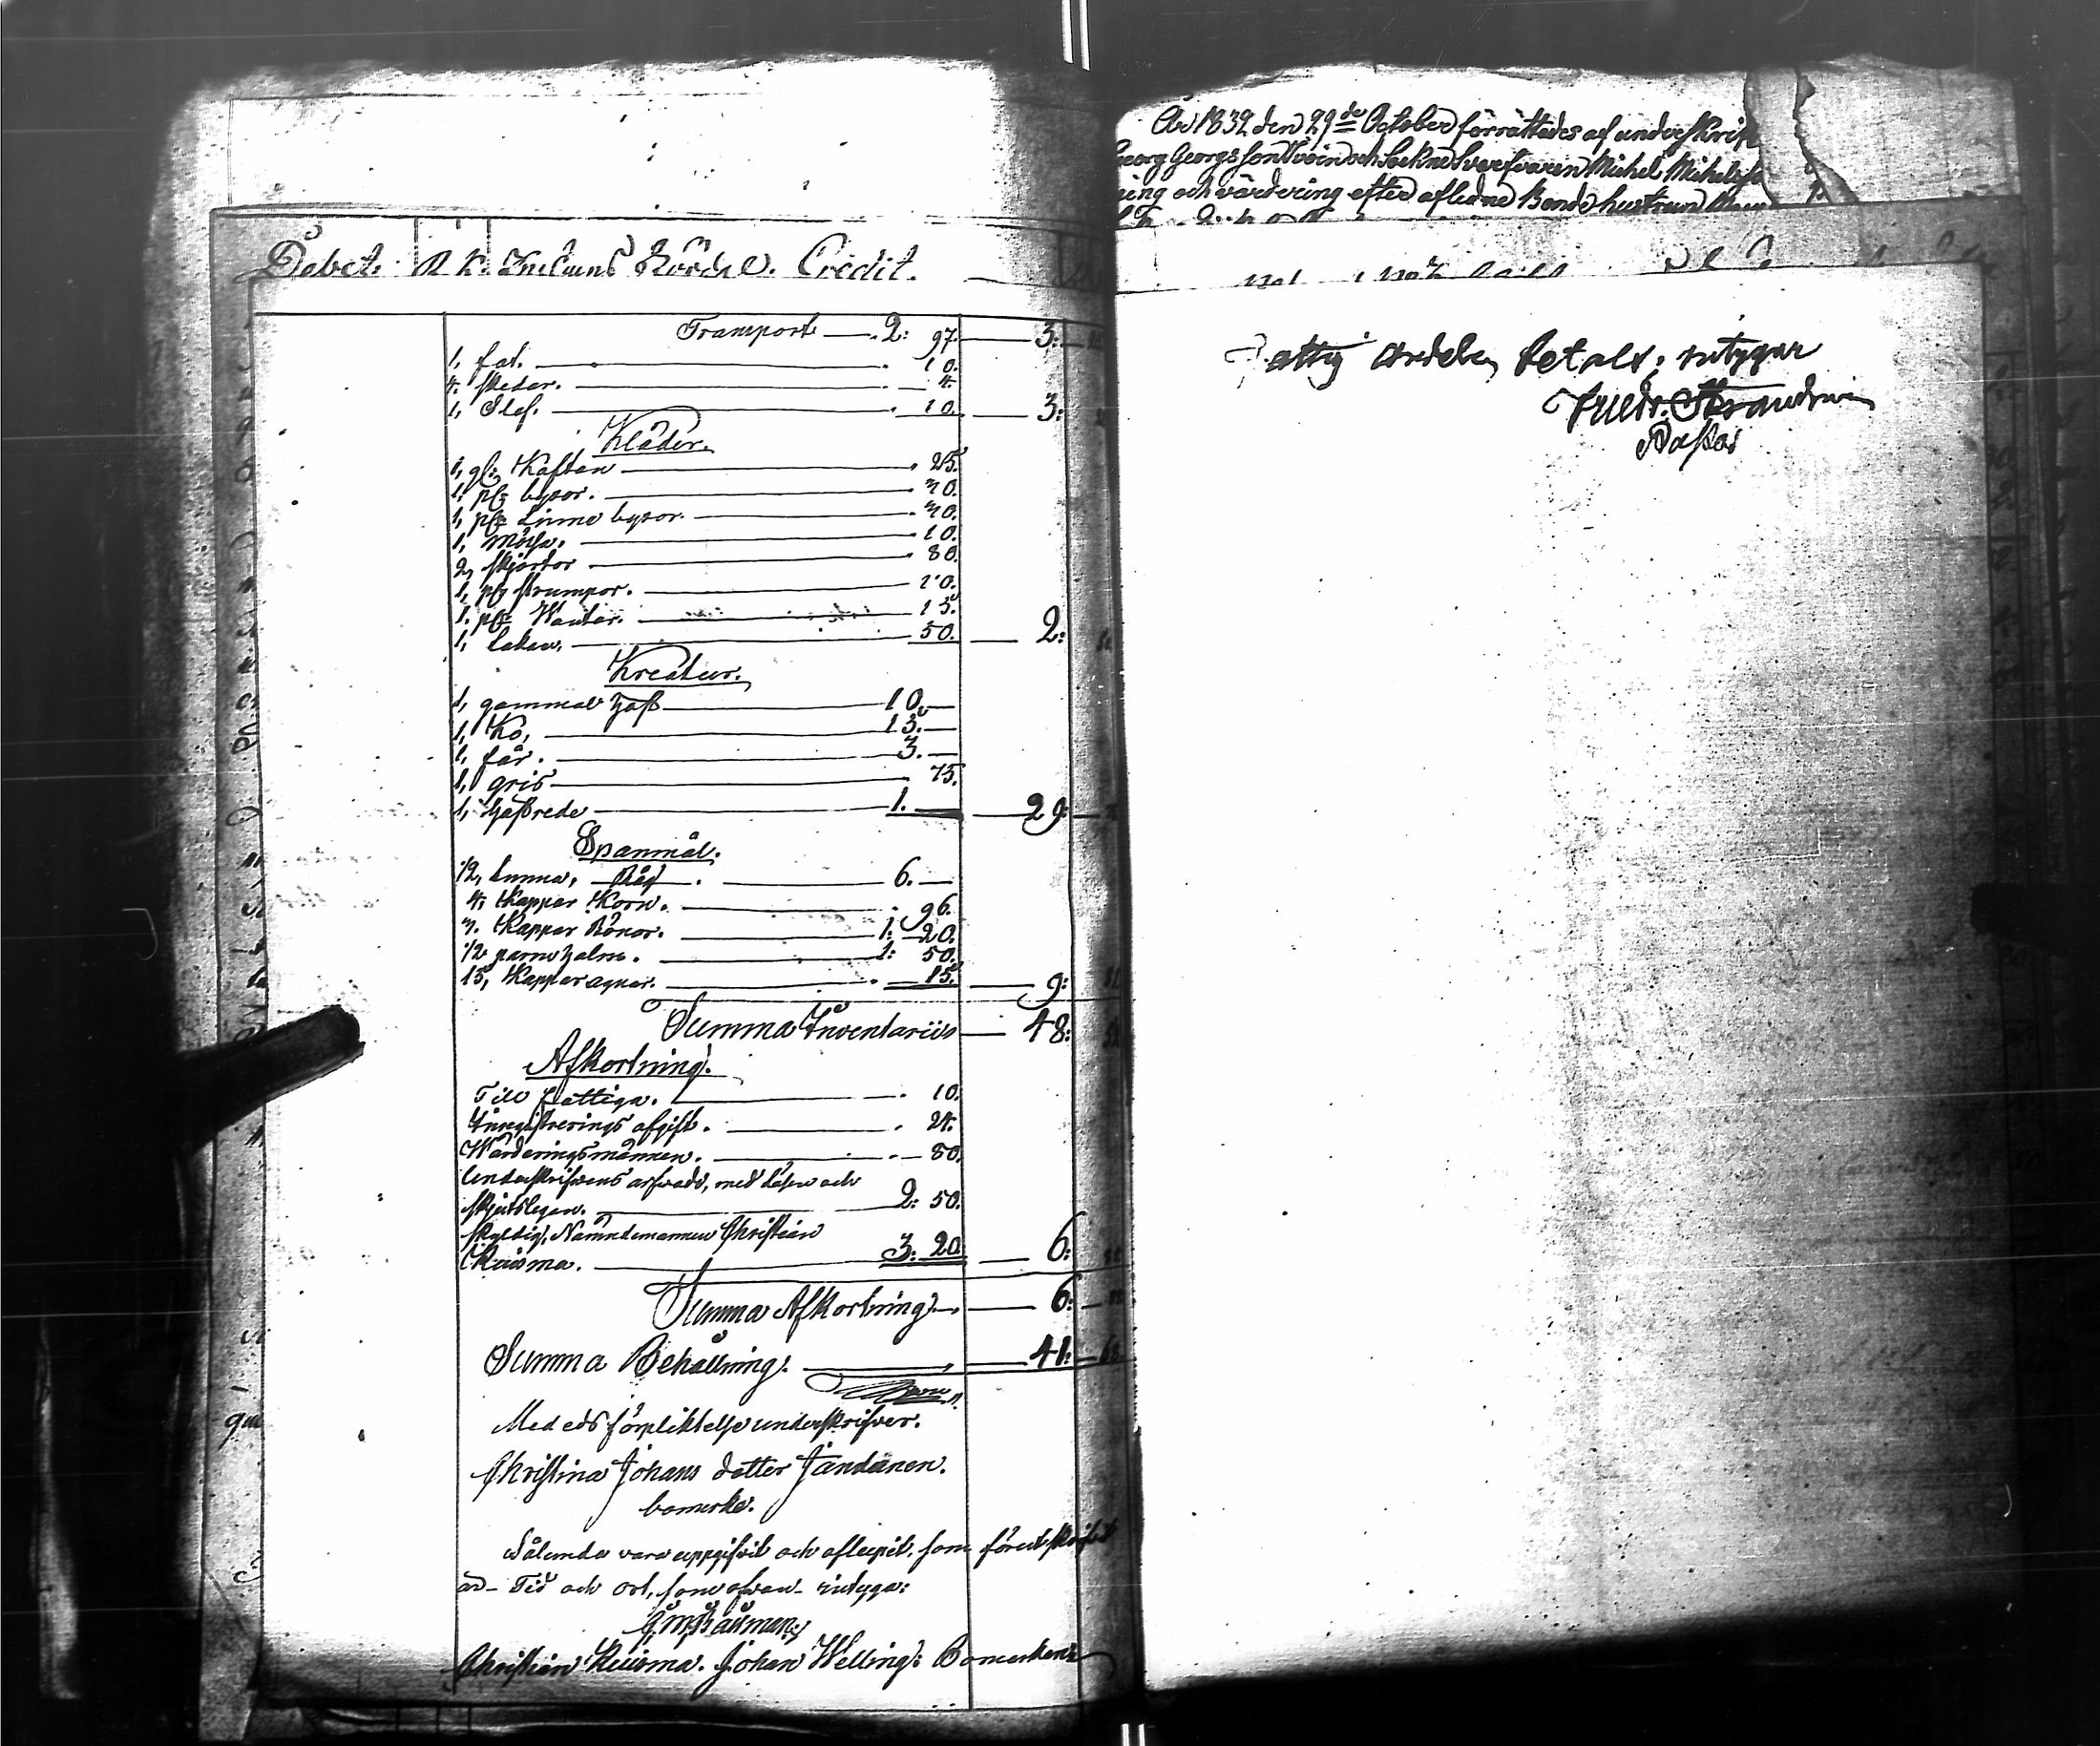 Debet. Credit.
Transport 2: 97. 3:
1, fat. 10.
4. skedar. 4.
1, Slef. 10. 3:
Kläder.
1, gl: Kaftan 25.
1, pr byxor. 40.
1, pr Linne byxor. 40.
1, Mössa. 10.
2, skjortor 80.
1, pr strumpor. 20.
1, pr Wantar. 15.
1, lakan. 50. 2:
Kreatur.
1, gammal häst 10.
1, Ko, 15.
1, får. 3.
1, gris 75.
1, hästrede 1. 29:
Spanmål.
1/2, tunna, Råg 6.
4, Kappar Korn. 96.
Kappar Bönor. 1: 20.
1/2 parm halm. 1: 50.
15, Kappar agnar. 15. 9:
Summa Inventarii 48:
Afkortning.
Till fattiga. 10.
Inregistrerings afgift. 24.
Wärderingsmännen. 80.
Underskrifvens arfvode, med lösen och
skjutslegan. 2: 50.
skyldig, Nämndemannen Christian
Kuisma. 3: 20. 6:
Summa Afkortning 6:
Summa Behållning. 41: 68
Med eds förpliktelse underskrifver.
Christina Johans dotter Jändänen.
bomerke.
Sålunda vara uppgifvit och aflupit, som förut skrifvit
är Tid och ort, som ofvan intyga:
Christian Kuisma. Johan Welling: Bomerken
År 1832 den 29de October förrättades af underskrif
Georg Georgsson och Sockneskräddaren Michel Michelss
ning och värdering efter aflidne Bonde hustrun
attig andelen betalt; intygar
Fredr. Strandman
Pastor